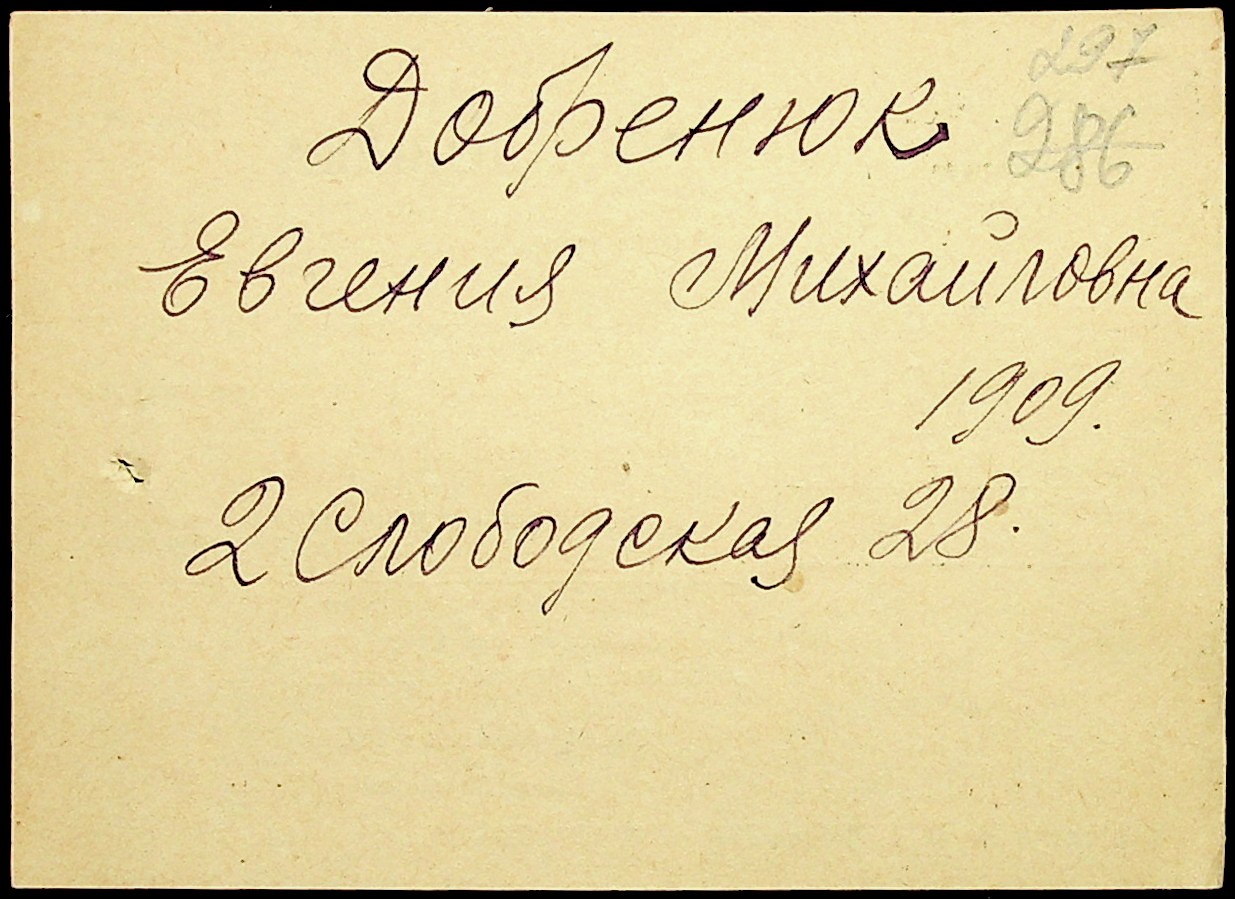 297
286
Добренюк
Евгения Михайловна
1909.
2 Слободская 28.